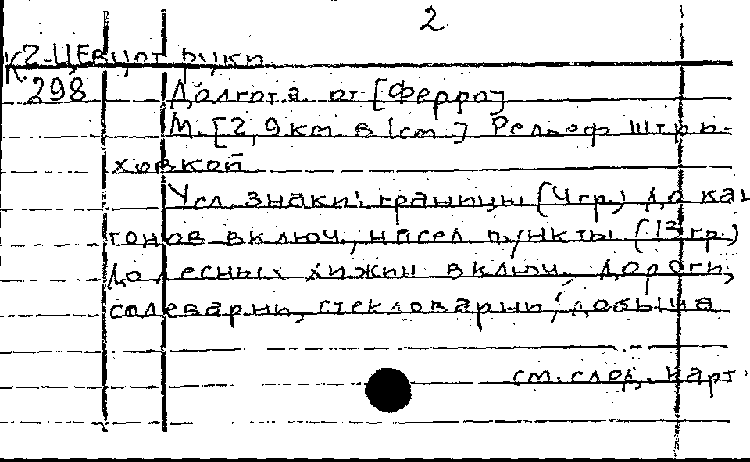 2
К 2-Цевцот руки
298
Долгота от [Ферро]
М. [2,9 км в 1 см.] Рельеф штри-
ховкой
Усл. знаки: границы (4 гр.) до кан
тонов включ., насел. пункты (13 гр.)
до лесных хижин включ. дороги,
солеварни, стекловарни, добыча
см. след. карт.